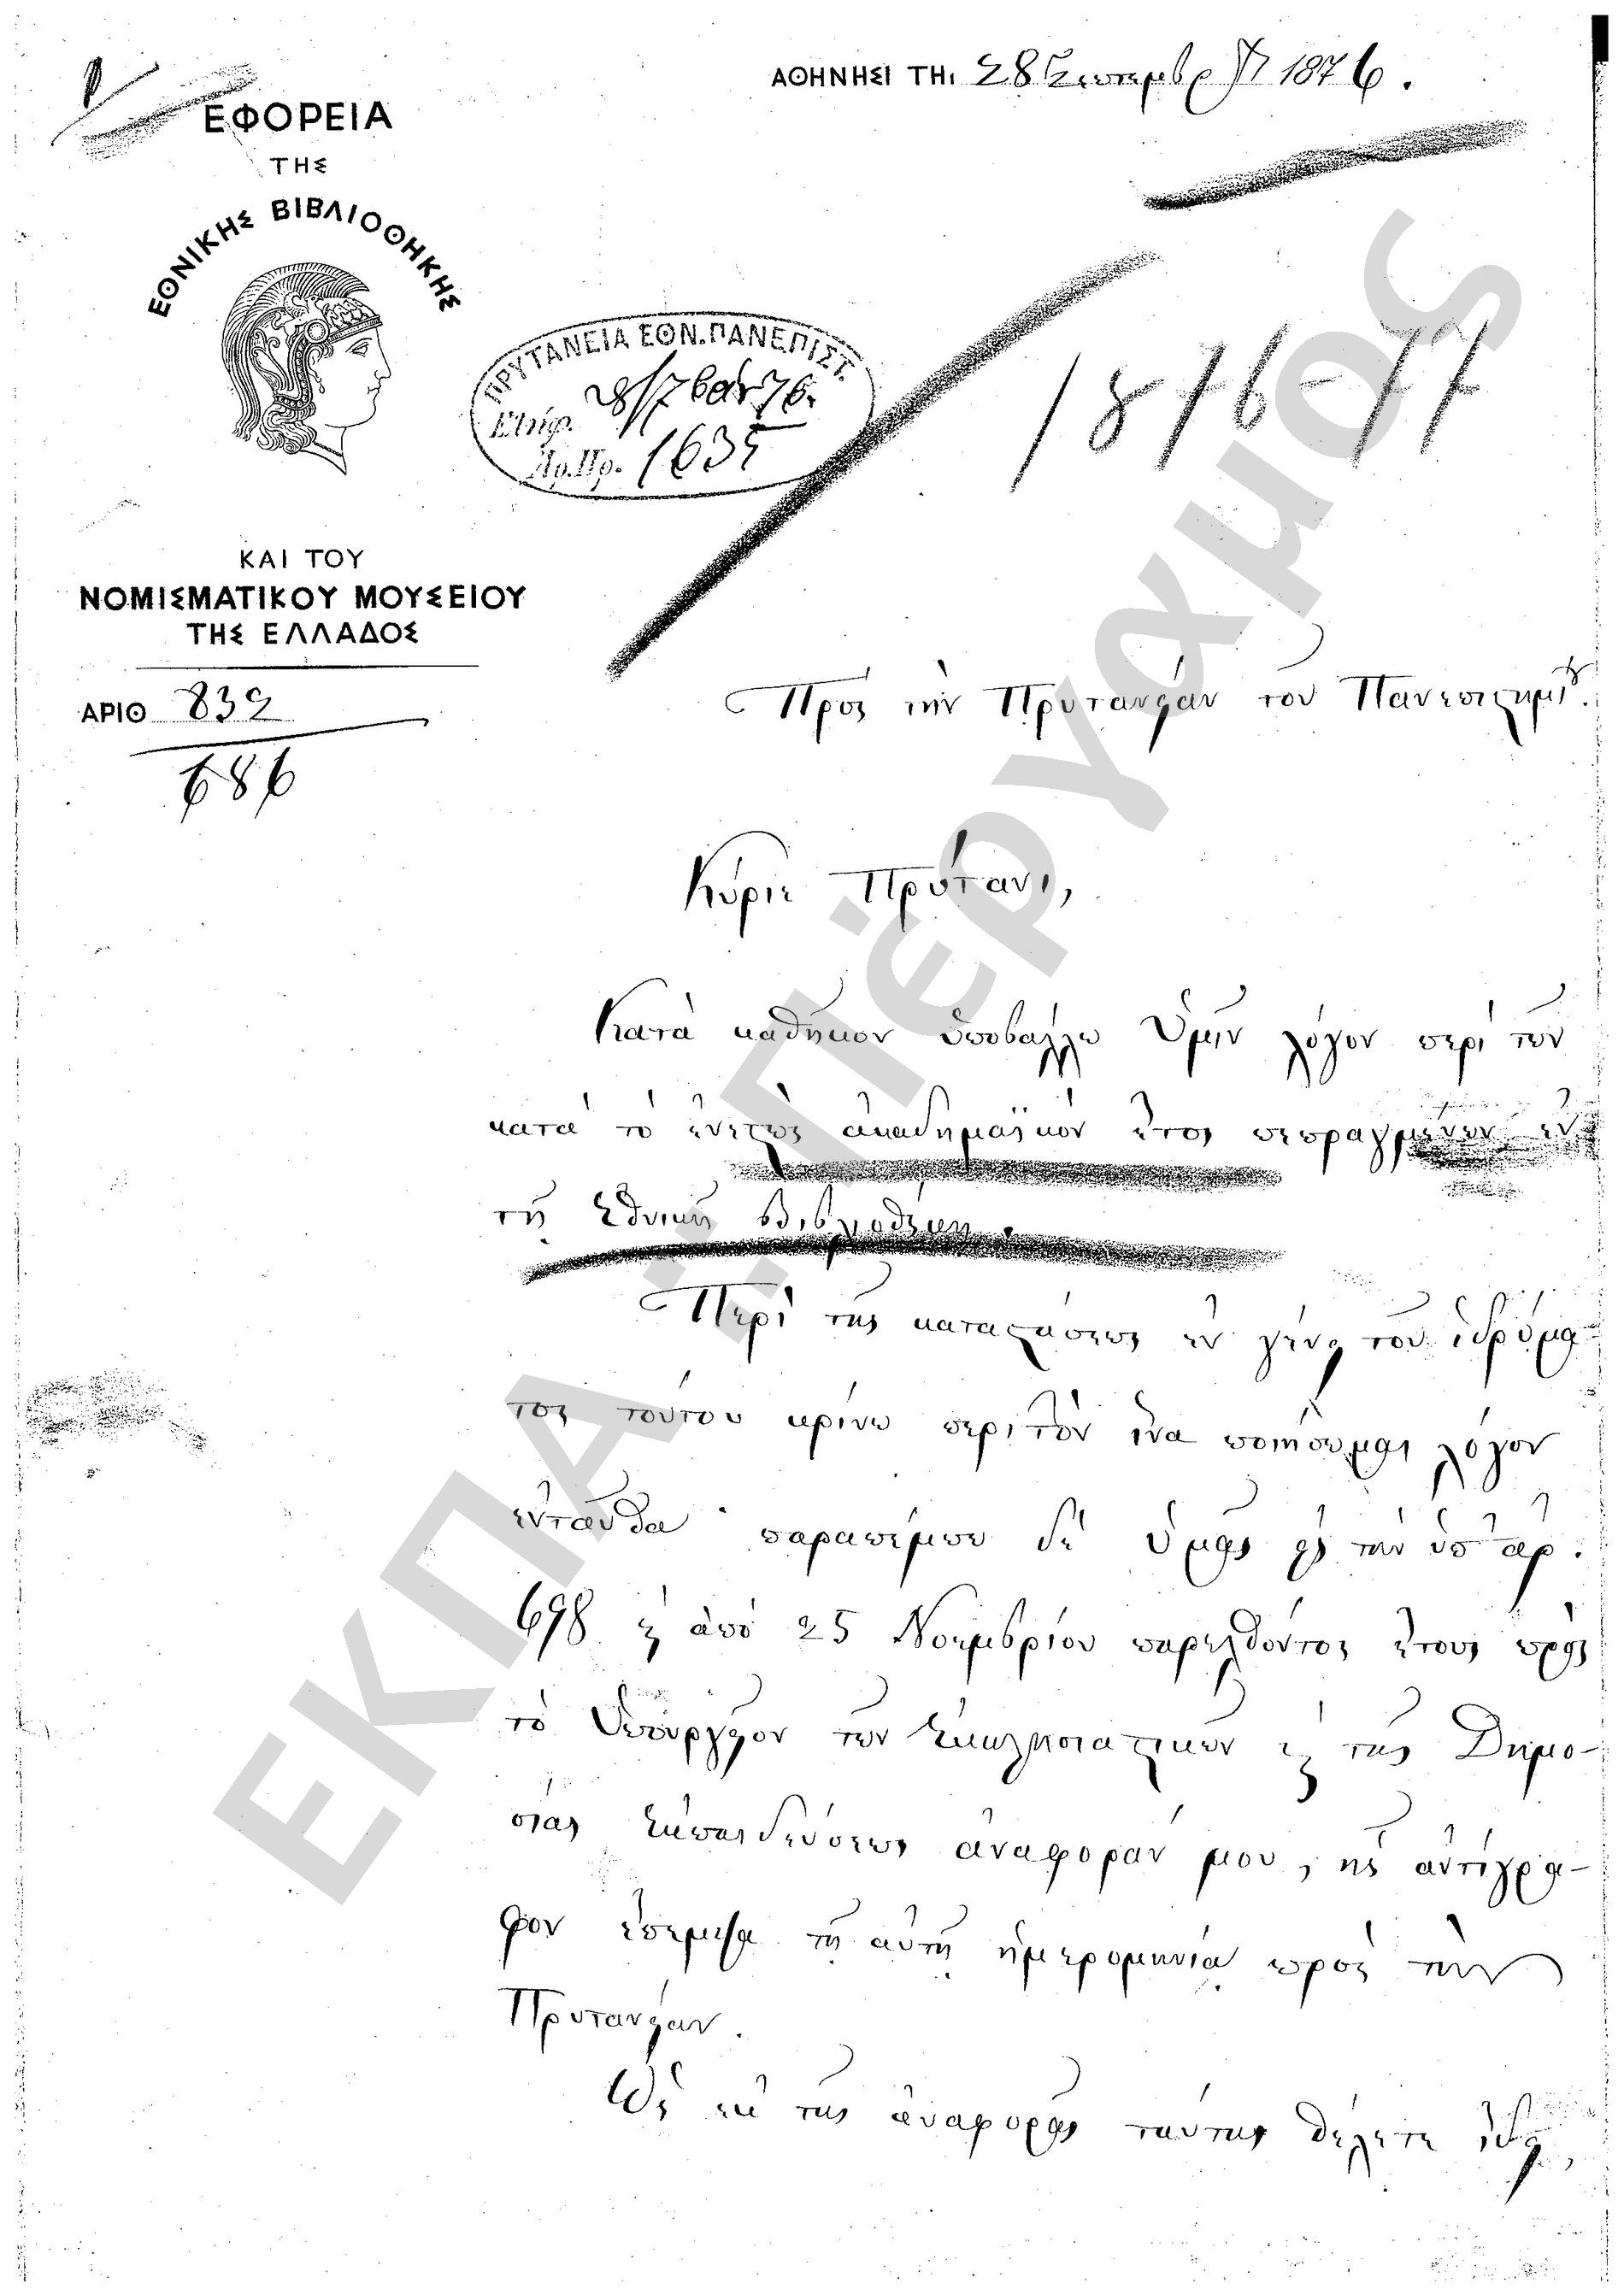 ΑΘΗΝΗΣΙ ΤΗι 28 Σεπτεμβρίου 1876.
ΕΦΟΡΕΙΑ
ΤΗΣ
ΕΘΝΙΚΗΣ ΒΙΒΛΙΟΘΗΚΗΣ
ΠΡΥΤΑΝΕΙΑ ΕΘΝ. ΠΑΝΕΠΙΣΤ.
Ελήφ. 28/7βρ 76.
Αρ. Πρ. 1635
1876-77
ΚΑΙ ΤΟΥ
ΝΟΜΙΣΜΑΤΙΚΟΥ ΜΟΥΣΕΙΟΥ
ΤΗΣ ΕΛΛΑΔΟΣ
ΑΡΙΘ 832
686
Πρὸς τὴν Πρυτανείαν τοῦ Πανεπιστημίου.
Κύριε Πρύτανι,
Κατὰ καθῆκον ὑποβάλλω Ὑμῖν λόγον περὶ τῶν
κατὰ τὸ ἐνεστὼς ἀκαδημαϊκὸν ἔτος πεπραγμένων ἐν
τῇ Ἐθνικῇ Βιβλιοθήκῃ.
Περὶ τῆς καταστάσεως ἐν γένει τοῦ ἱδρύμα-
τος τούτου κρίνω περιττὸν ἵνα ποιήσωμαι λόγον
ἐνταῦθα· παραπέμπω δὲ ὑμᾶς εἰς τὴν ὑπ' ἀρ.
698 καὶ ἀπὸ 25 Νοεμβρίου παρελθόντος ἔτους πρὸς
τὸ Ὑπουργεῖον τῶν Ἐκκλησιαστικῶν καὶ τῆς Δημο-
σίας Ἐκπαιδεύσεως ἀναφοράν μου, ἧς ἀντίγρα-
φον ἔπεμψα τῇ αὐτῇ ἡμερομηνίᾳ πρὸς τὴν
Πρυτανείαν.
Ὡς ἐκ τῆς ἀναφορᾶς ταύτης θέλετε ἰδεῖ,
ΕΚΠΑ "Πέργαμος